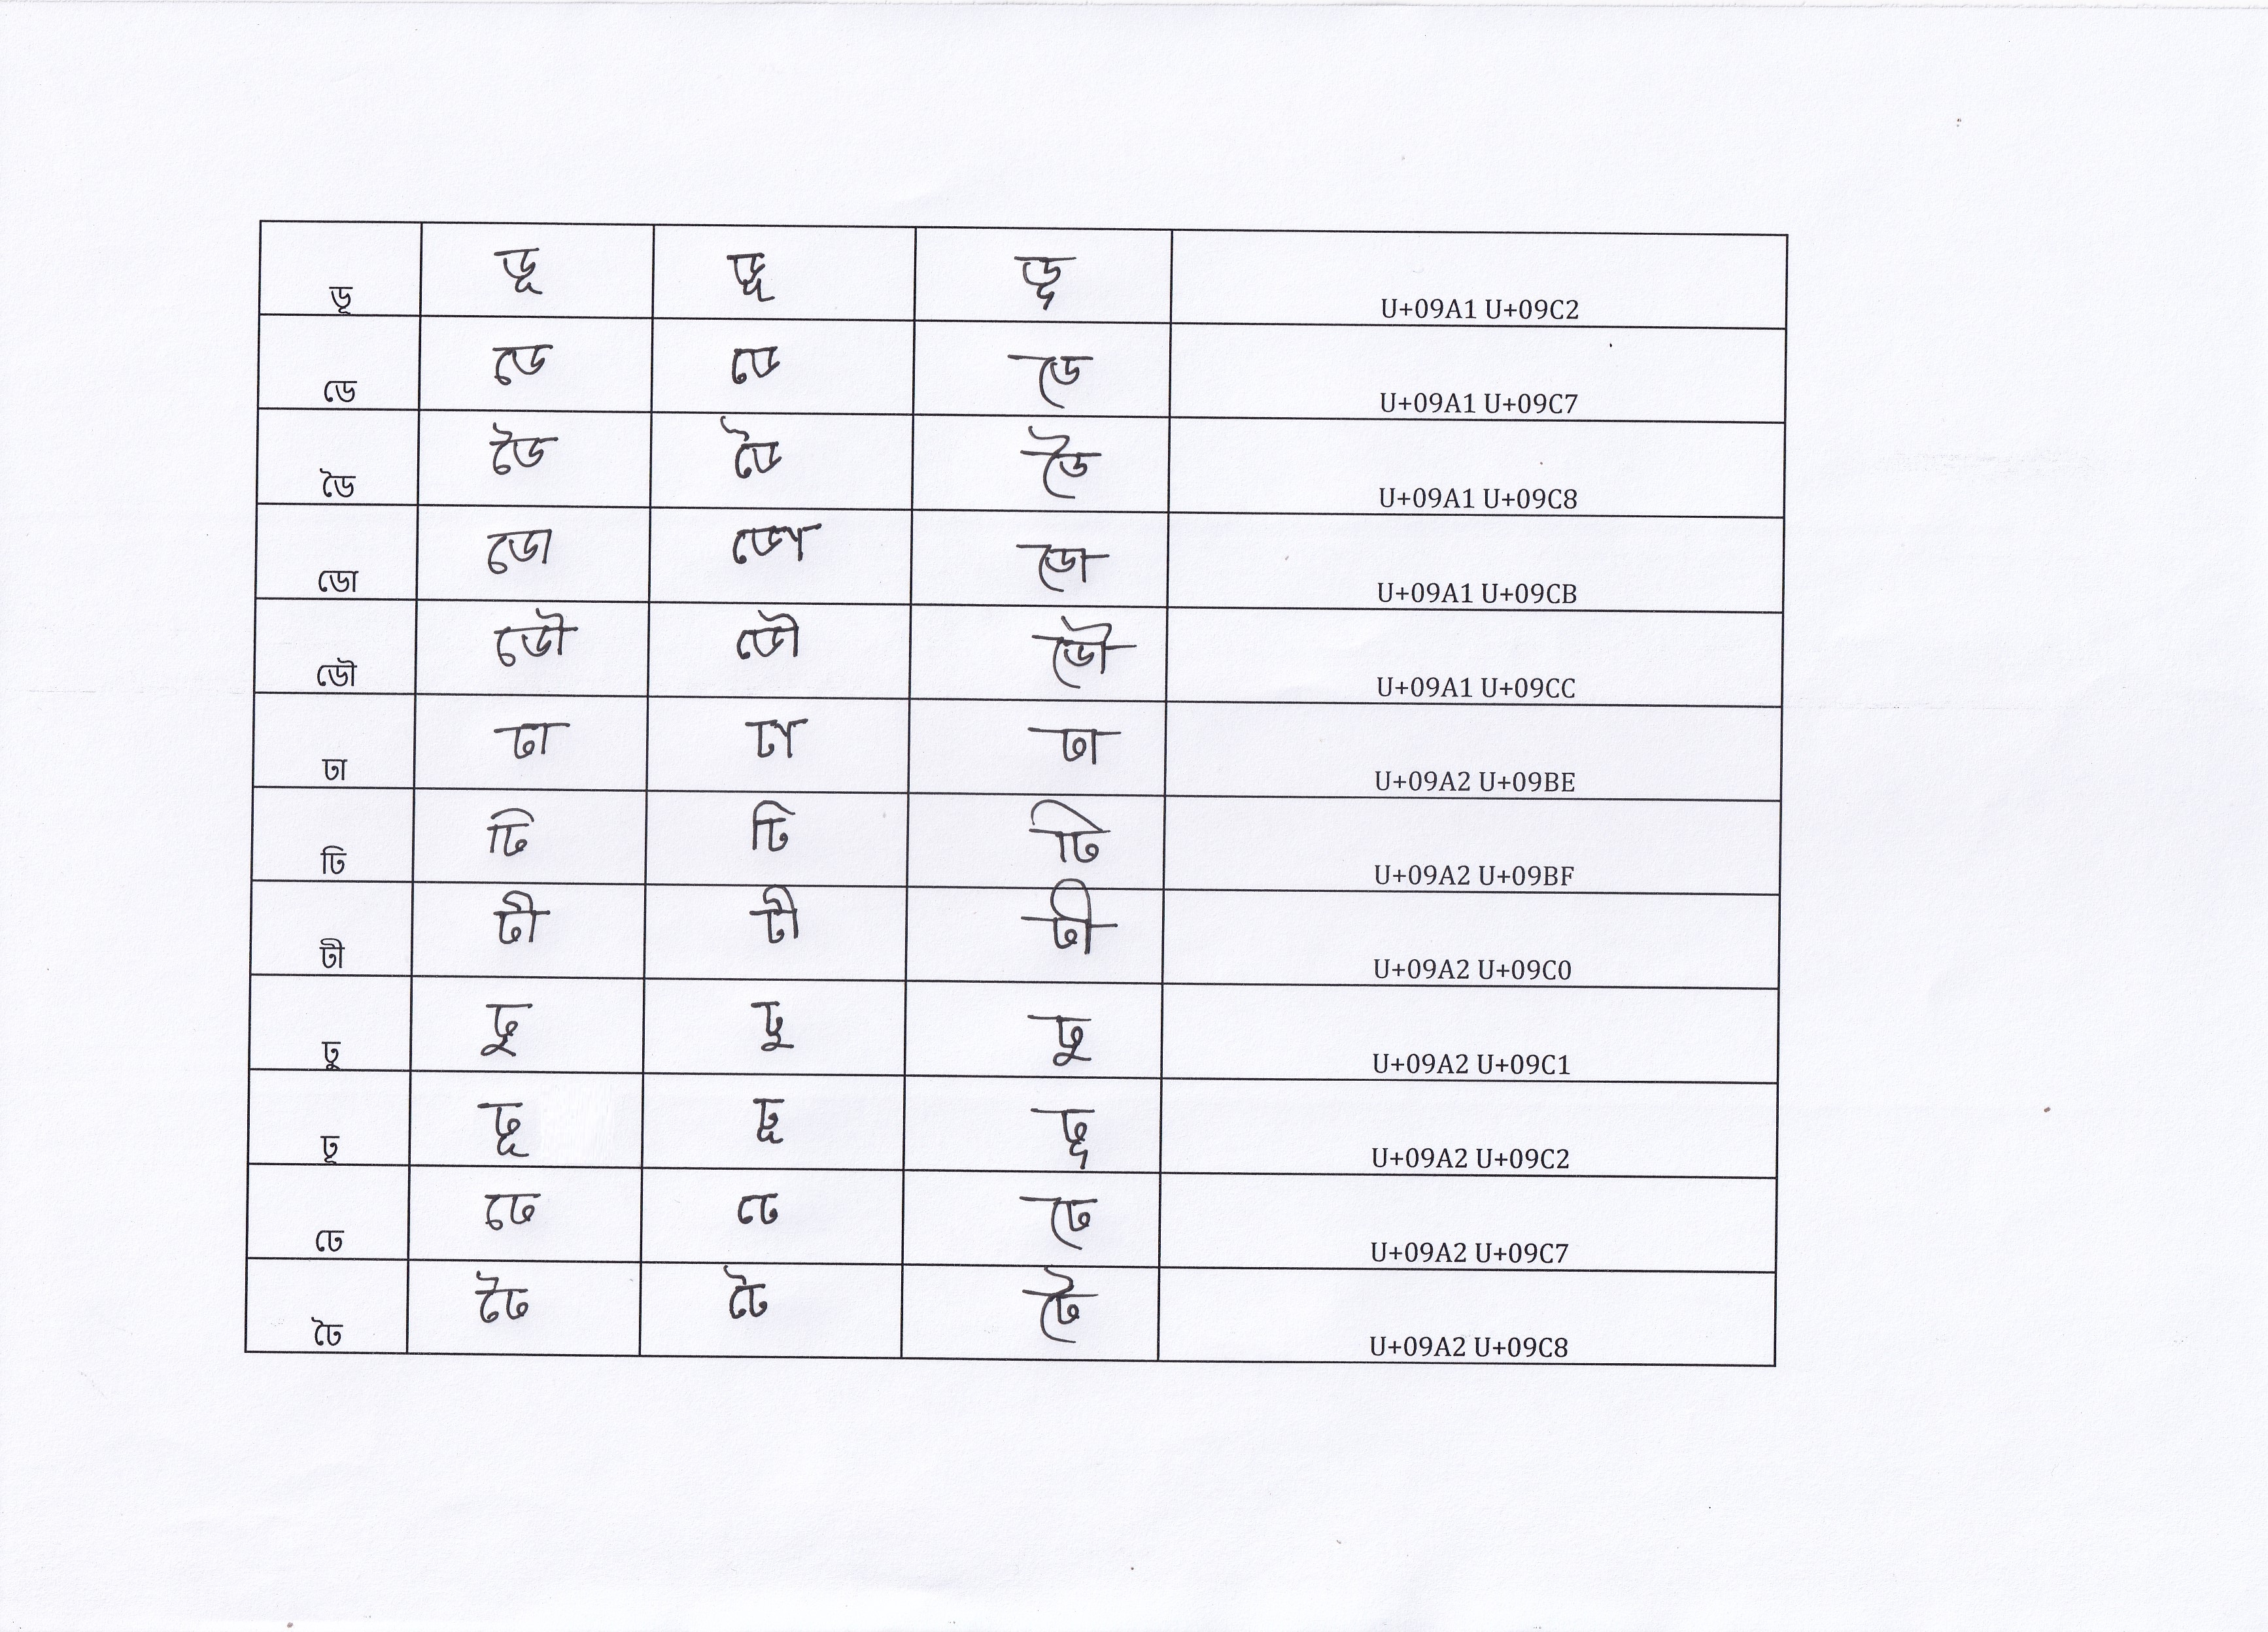 ডূ ডূ ডূ ডূ U+09A1 U+09C2
ডে ডে ডে ডে U+09A1 U+09C7
ডৈ ডৈ ডৈ ডৈ U+09A1 U+09C8
ডো ডো ডো ডো U+09A1 U+09CB
ডৌ ডৌ ডৌ ডৌ U+09A1 U+09CC
ঢা ঢা ঢা ঢা U+09A2 U+09BE
ঢি ঢি ঢি ঢি U+09A2 U+09BF
ঢী ঢী ঢী ঢী U+09A2 U+09C0
ঢু ঢু ঢু ঢু U+09A2 U+09C1
ঢূ ঢূ ঢূ ঢূ U+09A2 U+09C2
ঢে ঢে ঢে ঢে U+09A2 U+09C7
ঢৈ ঢৈ ঢৈ ঢৈ U+09A2 U+09C8